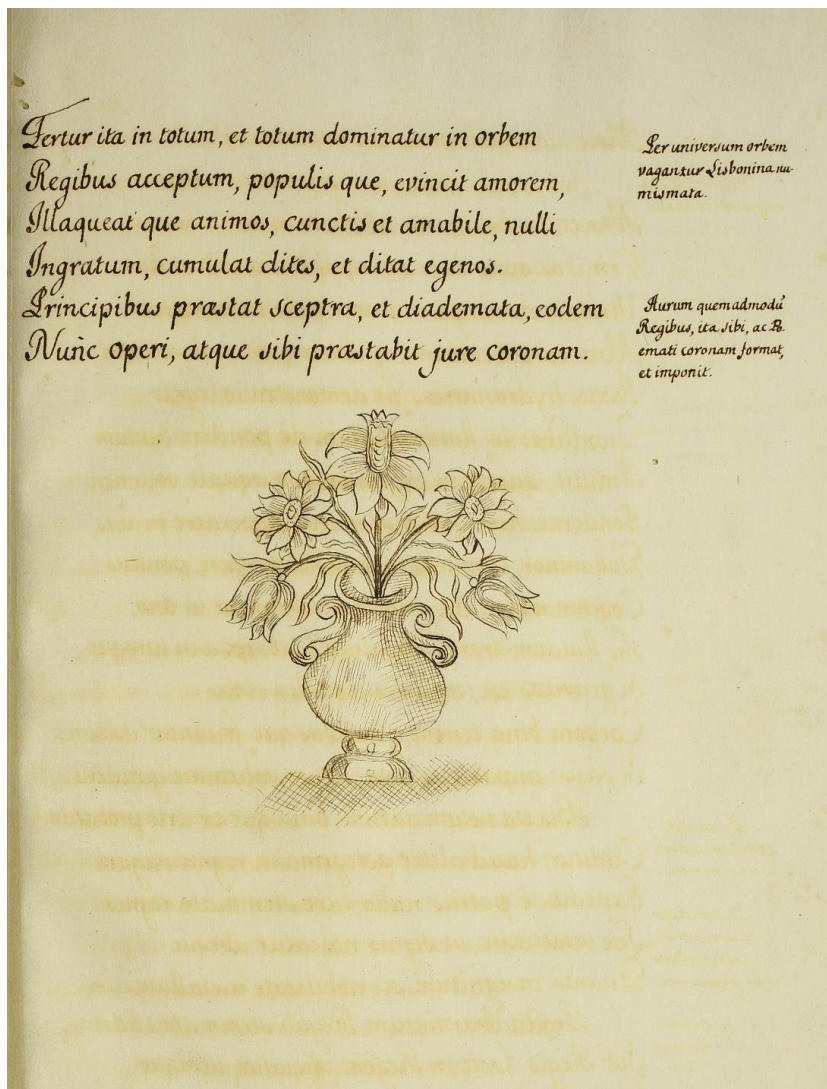 Fertur ita in totum, et totum dominatur in orbem
Regibus acceptum, populis que, evincit amorem,
Illaqueat que animos, cunctis et amabile, nulli
Ingratum, cumulat dites, et ditat egenos.
Principibus præstat sceptra, et diademata, eodem
Nunc operi, atque sibi præstabit jure coronam.
Per universum orbem
vagantur Lisbonina nu-
mismata.
Aurum quemadmodũ
Regibus, ita sibi, ac Po-
emati coronam format,
et imponit.